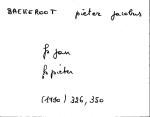 BACKEROOT pieter jacobus
fs jan
fs pieter
(1950) 326, 350